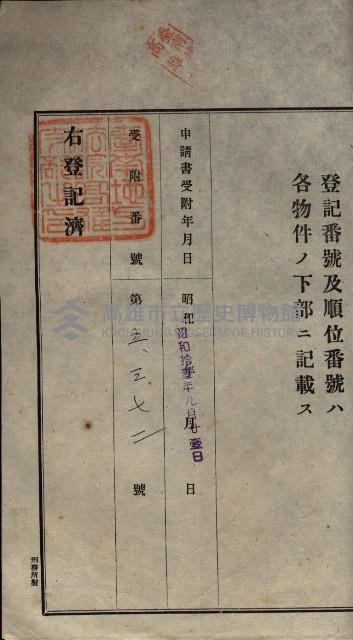 登記番號及順位番號ハ
各物件ノ下部ニ記載ス
申請書受附年月日
昭和 年 月 日
昭和拾
年九月廿壹日
受附番號
第 五、三七二 號
右登記濟
刑務所製
高雄市立歷史博物館
KAOHSIUNG MUSEUM OF HISTORY